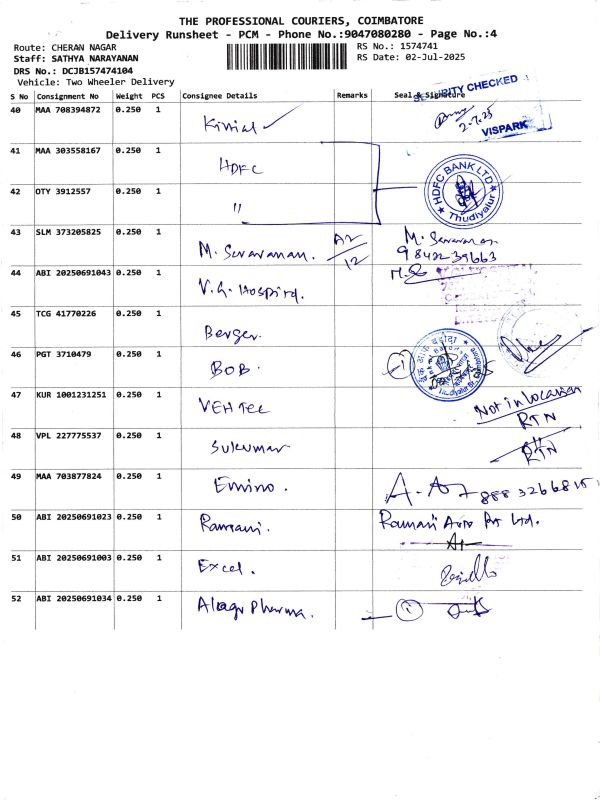 THE PROFESSIONAL COURIERS, COIMBATORE
Delivery Runsheet - PCM - Phone No.:9047080280 - Page No.:4
Route: CHERAN NAGAR
RS No.: 1574741
Staff: SATHYA NARAYANAN
RS Date: 02-Jul-2025
DRS No.: DCJB157474104
Vehicle: Two Wheeler Delivery
S No Consignment No Weight PCS Consignee Details Remarks Seal & Signature
SECURITY CHECKED
40 MAA 708394872 0.250 1
2-7-25
VISPARK
41 MAA 303558167 0.250 1 HDFC
HDFC BANK LTD
Thudiyalur
42 OTY 3912557 0.250 1 "
43 SLM 373205825 0.250 1 M. Saravanan. A2/12 M. Saravanan
98422 39663
44 ABI 20250691043 0.250 1 V.G. Hospital.
45 TCG 41770226 0.250 1 Berger.
46 PGT 3710479 0.250 1 BOB. 1
47 KUR 1001231251 0.250 1 VEH TEC Not in location
RTN
48 VPL 227775537 0.250 1 Sukumar "
RTN
49 MAA 703877824 0.250 1 888 3266815
50 ABI 20250691023 0.250 1 Ramani. Ramani Auto Pvt Ltd.
51 ABI 20250691003 0.250 1 Excel.
52 ABI 20250691034 0.250 1 Pharma. 1